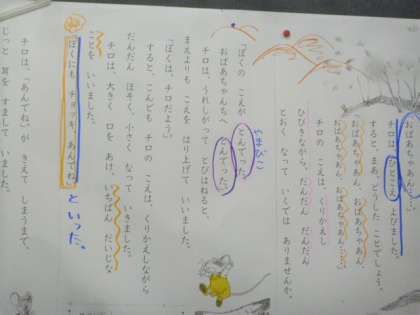 「おばあちゃあん。」
と、ひとこえ よびました。
すると、まあ、どうした ことでしょう。
おばあちゃあん、おばあちゃあん、
おばあちゃあん、おばあちゃあん……
チロの こえは、くりかえし
ひびきながら、だんだん だんだん
とおく なって いくでは ありませんか。
「ぼくの こえが
とんでった。
とんでった。
やまびこ
おばあちゃんちへ
チロは、うれしがって とびはねると、
まえよりも こえを はり上げて いいました。
「ぼくは、チロだよう。」
すると、こんども チロの こえは、くりかえしながら
だんだん ほそく、小さく なって いきました。
チロは、大きく 口を あけ、いちばん だいじな
ことを いいました。
「ぼくにも チョッキ、あんでね
といった。
チロは、「あんでね」が きえて しまうまで、
じっと 耳を すまして いました。